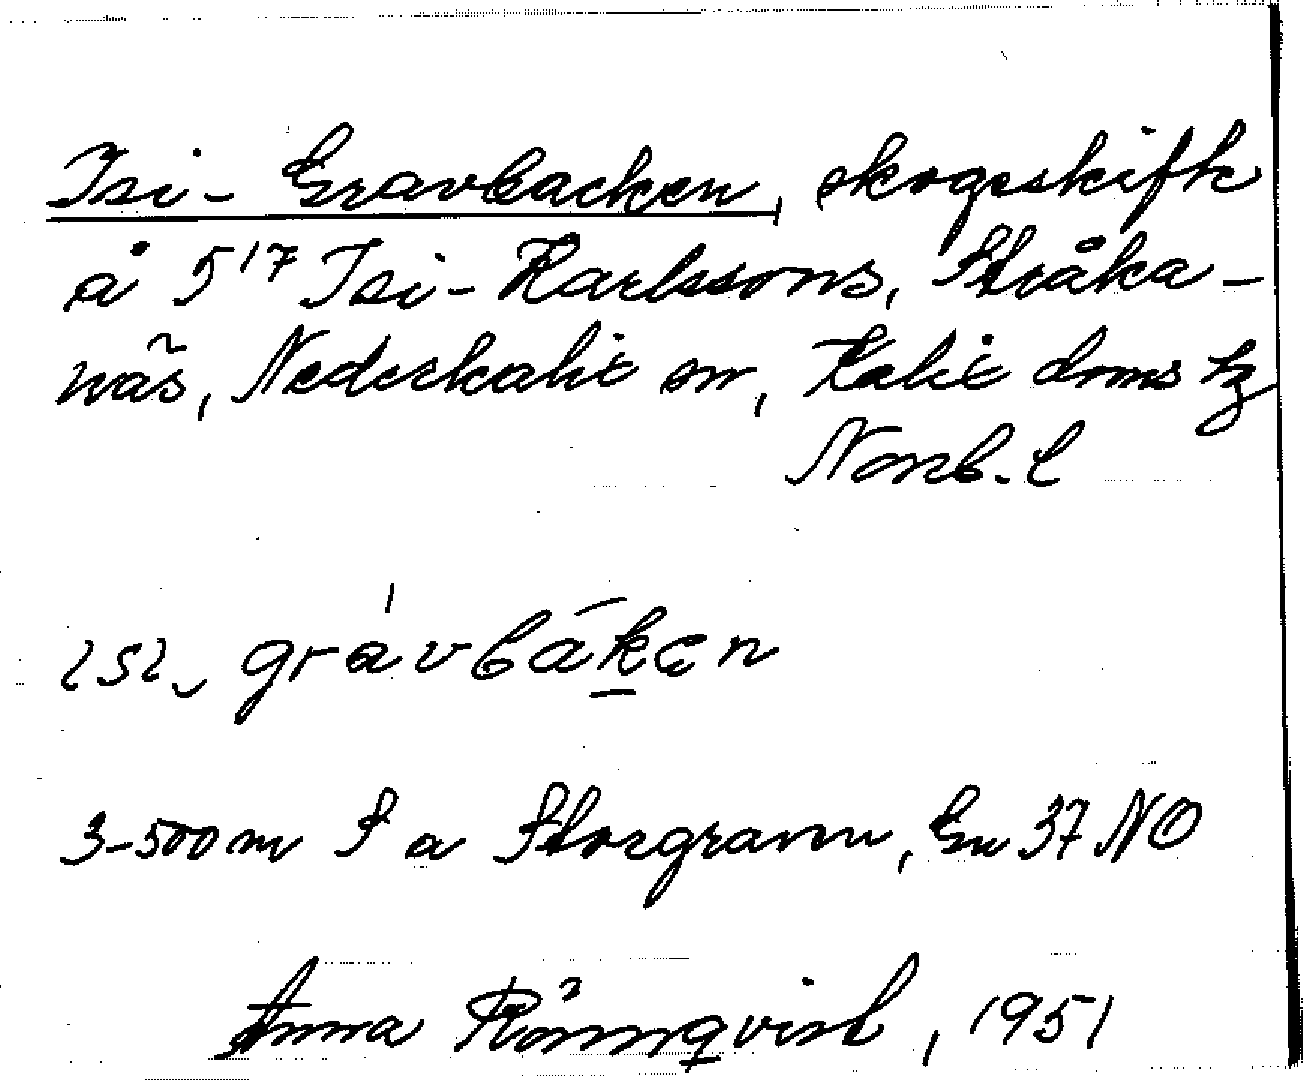 Isi-Gravbacken, skogsskifte
å 5¹⁷ Isi-Karlssons, Stråka-
näs, Nederkalix sn, Kalix doms tg
Norrb. l
ısı‿ grávbákɛn
3-500 m S a Storgravm, Gu 37 NO
Anna Rönnqvist, 1951